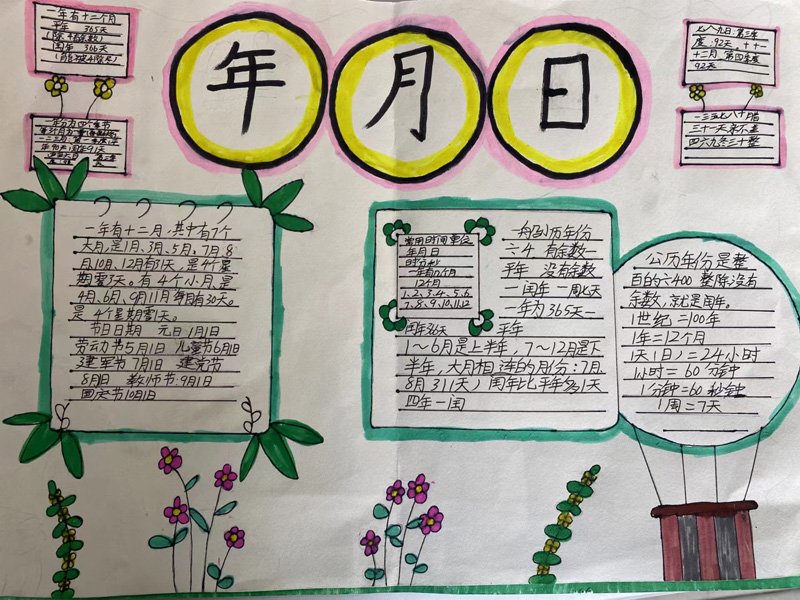 年 月 日
一年有十二个月
平年 365天
闰年 366天
七八九日:第三季
度:92天 十十一
十二月 第四季度
92天
一三五七八十腊
三十一天永不差
四六九冬三十整
一年有十二月,其中有7个
大月,是1月、3月、5月、7月、8
月、10月、12月有31天,是4个星
期零3天。有4个小月,是
4月、6月、9月11月每月有30天。
是4个星期零1天。
节日日期 元旦1月1日
劳动节5月1日 儿童节6月1日
建军节 7月1日 建党节
8月1日 教师节:9月1日
国庆节10月1日
常用时间单位
年月日
时分秒
一年有12个月
12个月
1、2、3、4、5、6
7、8、9、10、11、12
一般到历年份
六4 有余数
平年 没有余数
一闰年 一周七天
一年为365天一
闰年366天 平年
1~6月是上半年,7~12月是下
半年,大月相连的月份:7月、
8月31(天)闰年比平年多1天
四年一闰
公历年份是整
百的六400 整除没有
余数,就是闰年。
1世纪=100年
1年=12个月
1天(1日)=24小时
1小时=60分钟
1分钟=60秒钟
1周=7天